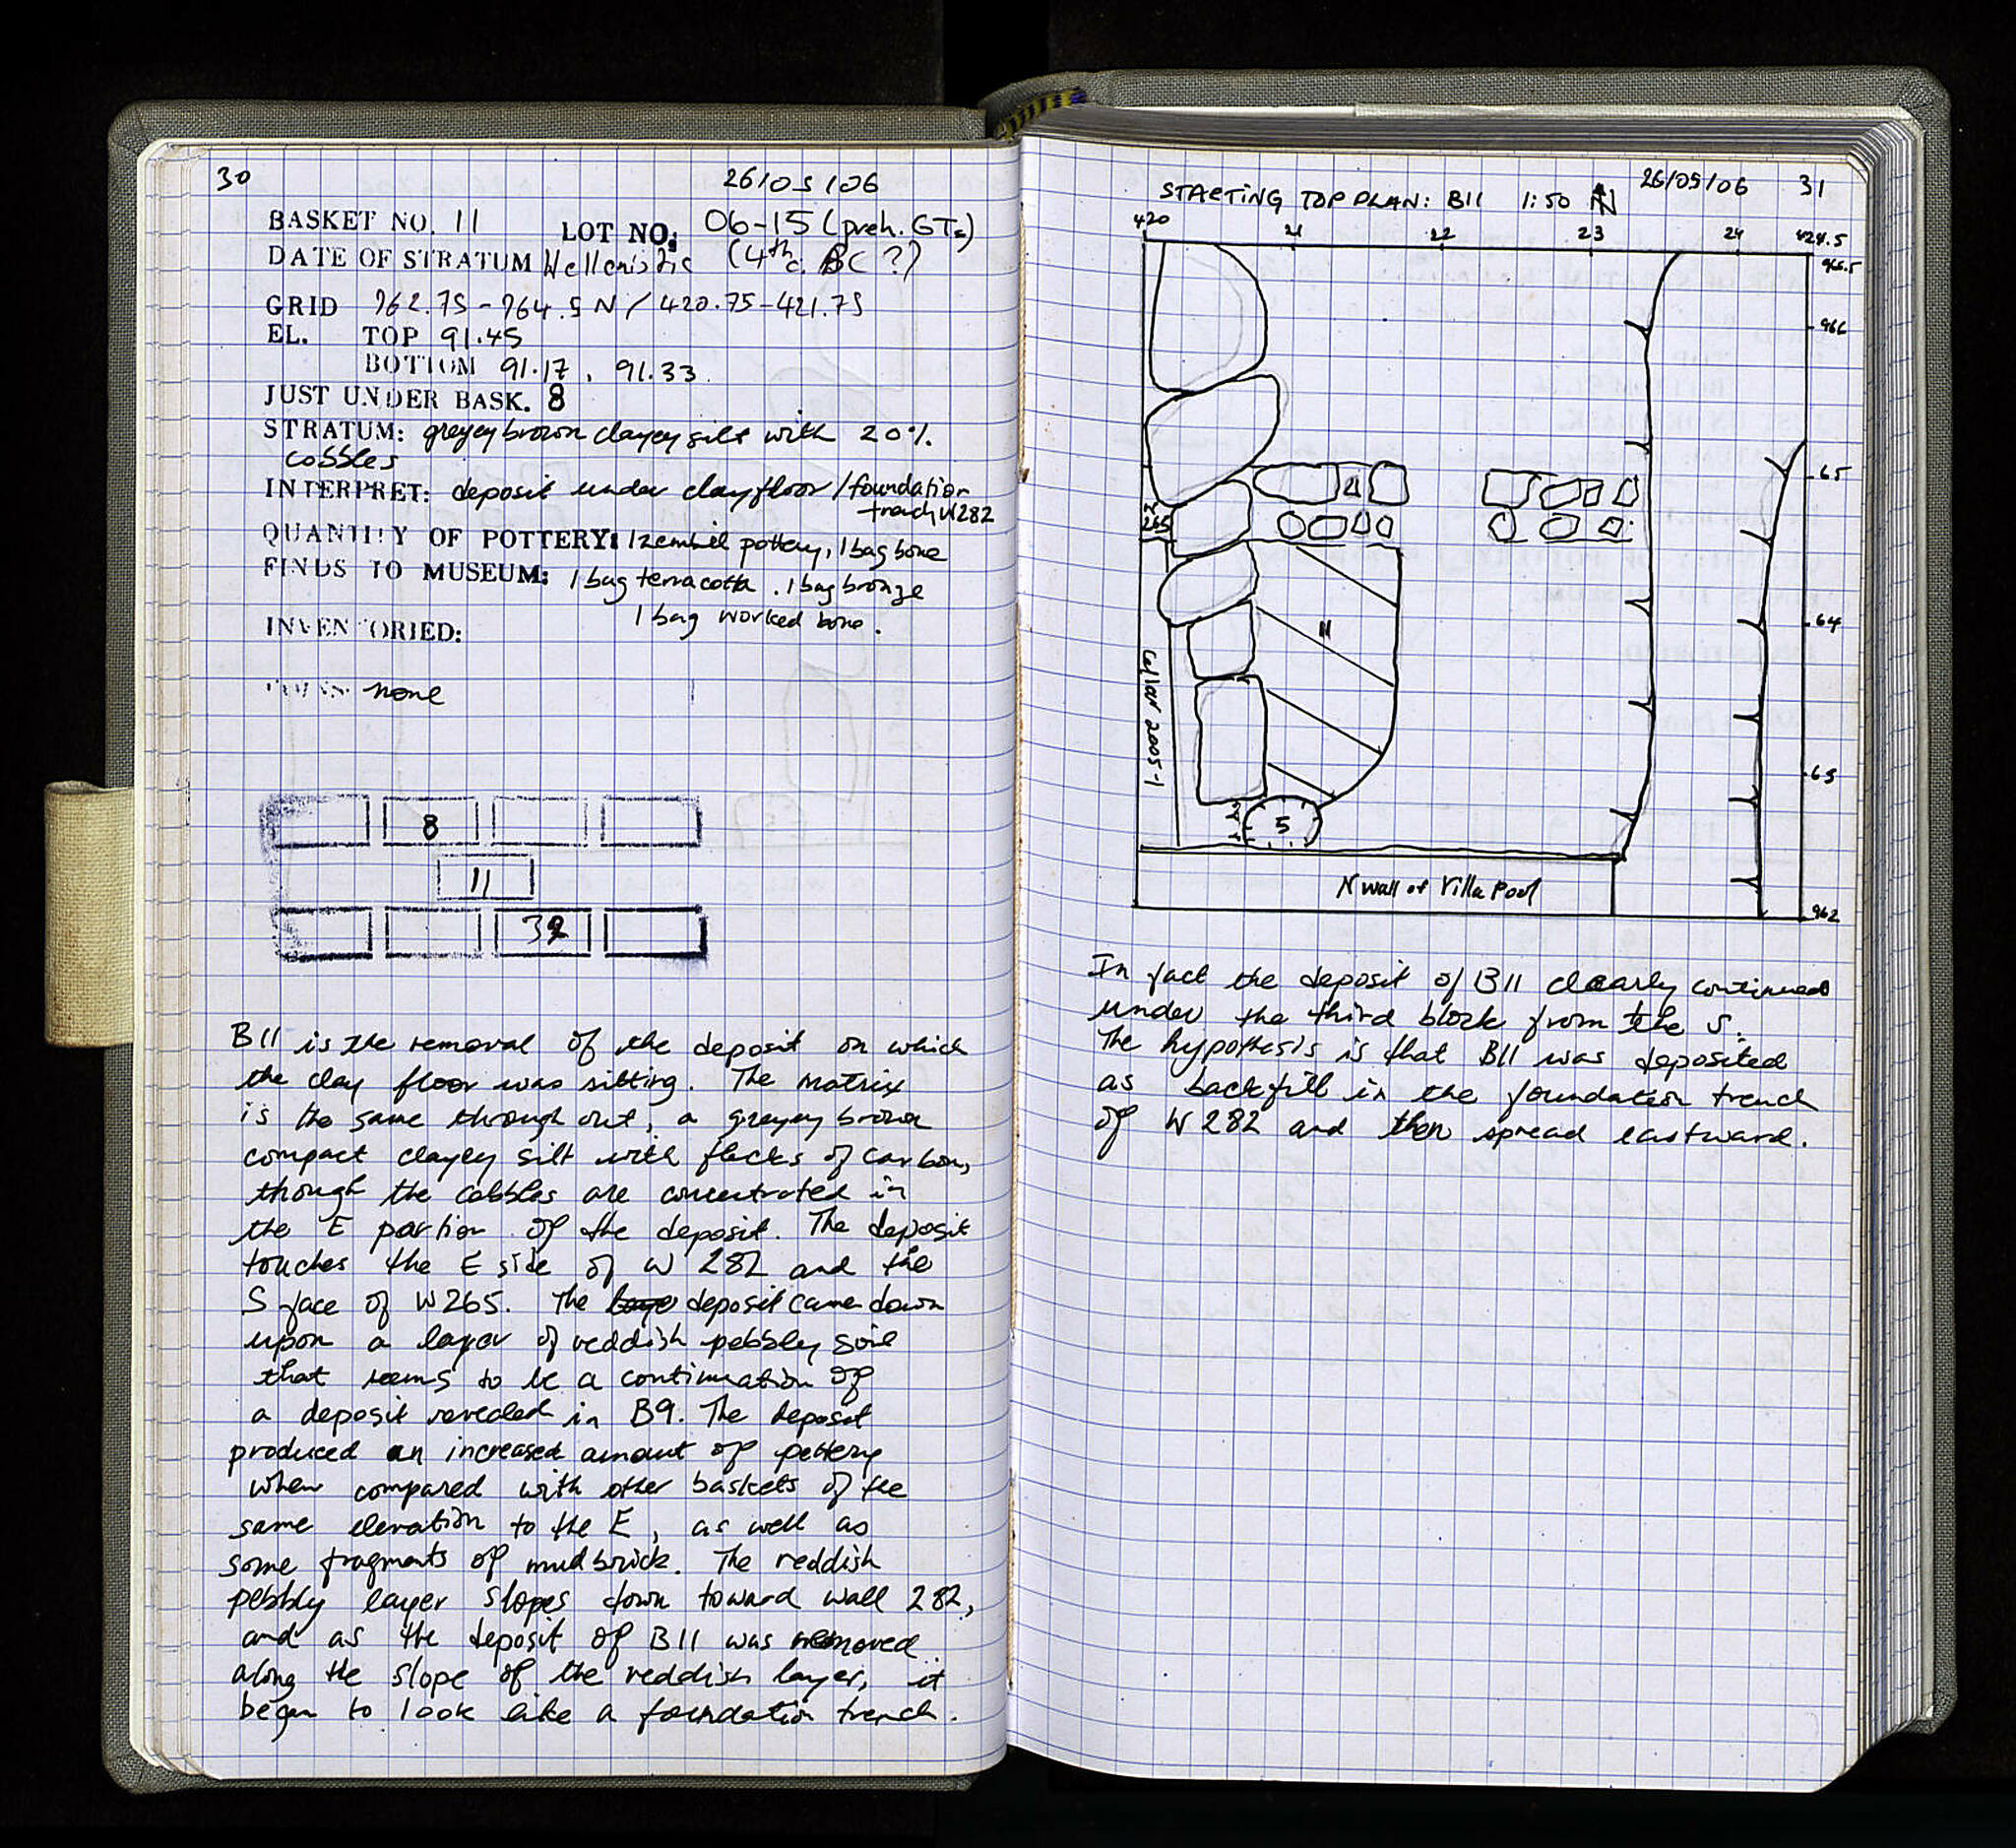 30
26/05/06
BASKET NO. 11 LOT NO: 06-15 (preh. GTs)
DATE OF STRATUM Hellenistic (4th c. BC ?)
GRID 962.75-964.5 N / 420.75-421.75
EL. TOP 91.45
BOTTOM 91.17, 91.33
JUST UNDER BASK. 8
STRATUM: greyey brown clayey silt with 20%
cobbles
INTERPRET: deposit under clay floor / foundation
trench W282
QUANTITY OF POTTERY: 1 zembil pottery, 1 bag bone
FINDS TO MUSEUM: 1 bag terracotta. 1 bag bronze
1 bag worked bone.
INVENTORIED:
COINS: none
8
11
39
B11 is the removal of the deposit on which
the clay floor was sitting. The matrix
is the same throughout, a greyey brown
compact clayey silt with flecks of carbon,
though the cobbles are concentrated in
the E portion of the deposit. The deposit
touches the E side of W 282 and the
S face of W265. The deposit came down
upon a layer of reddish pebbly soil
that seems to be a continuation of
a deposit revealed in B9. The deposit
produced an increased amount of pottery
when compared with other baskets of the
same elevation to the E, as well as
some fragments of mudbrick. The reddish
pebbly layer slopes down toward wall 282,
and as the deposit of B11 was removed
along the slope of the reddish layer, it
began to look like a foundation trench.
26/05/06 31
STARTING TOP PLAN: B11 1:50 N
420 21 22 23 24 424.5
966.5
966
65
265
64
11
Cellar 2005-1
65
5
N wall of Villa Pool
962
In fact the deposit of B11 clearly continued
under the third block from the S.
The hypothesis is that B11 was deposited
as backfill in the foundation trench
of W 282 and then spread eastward.